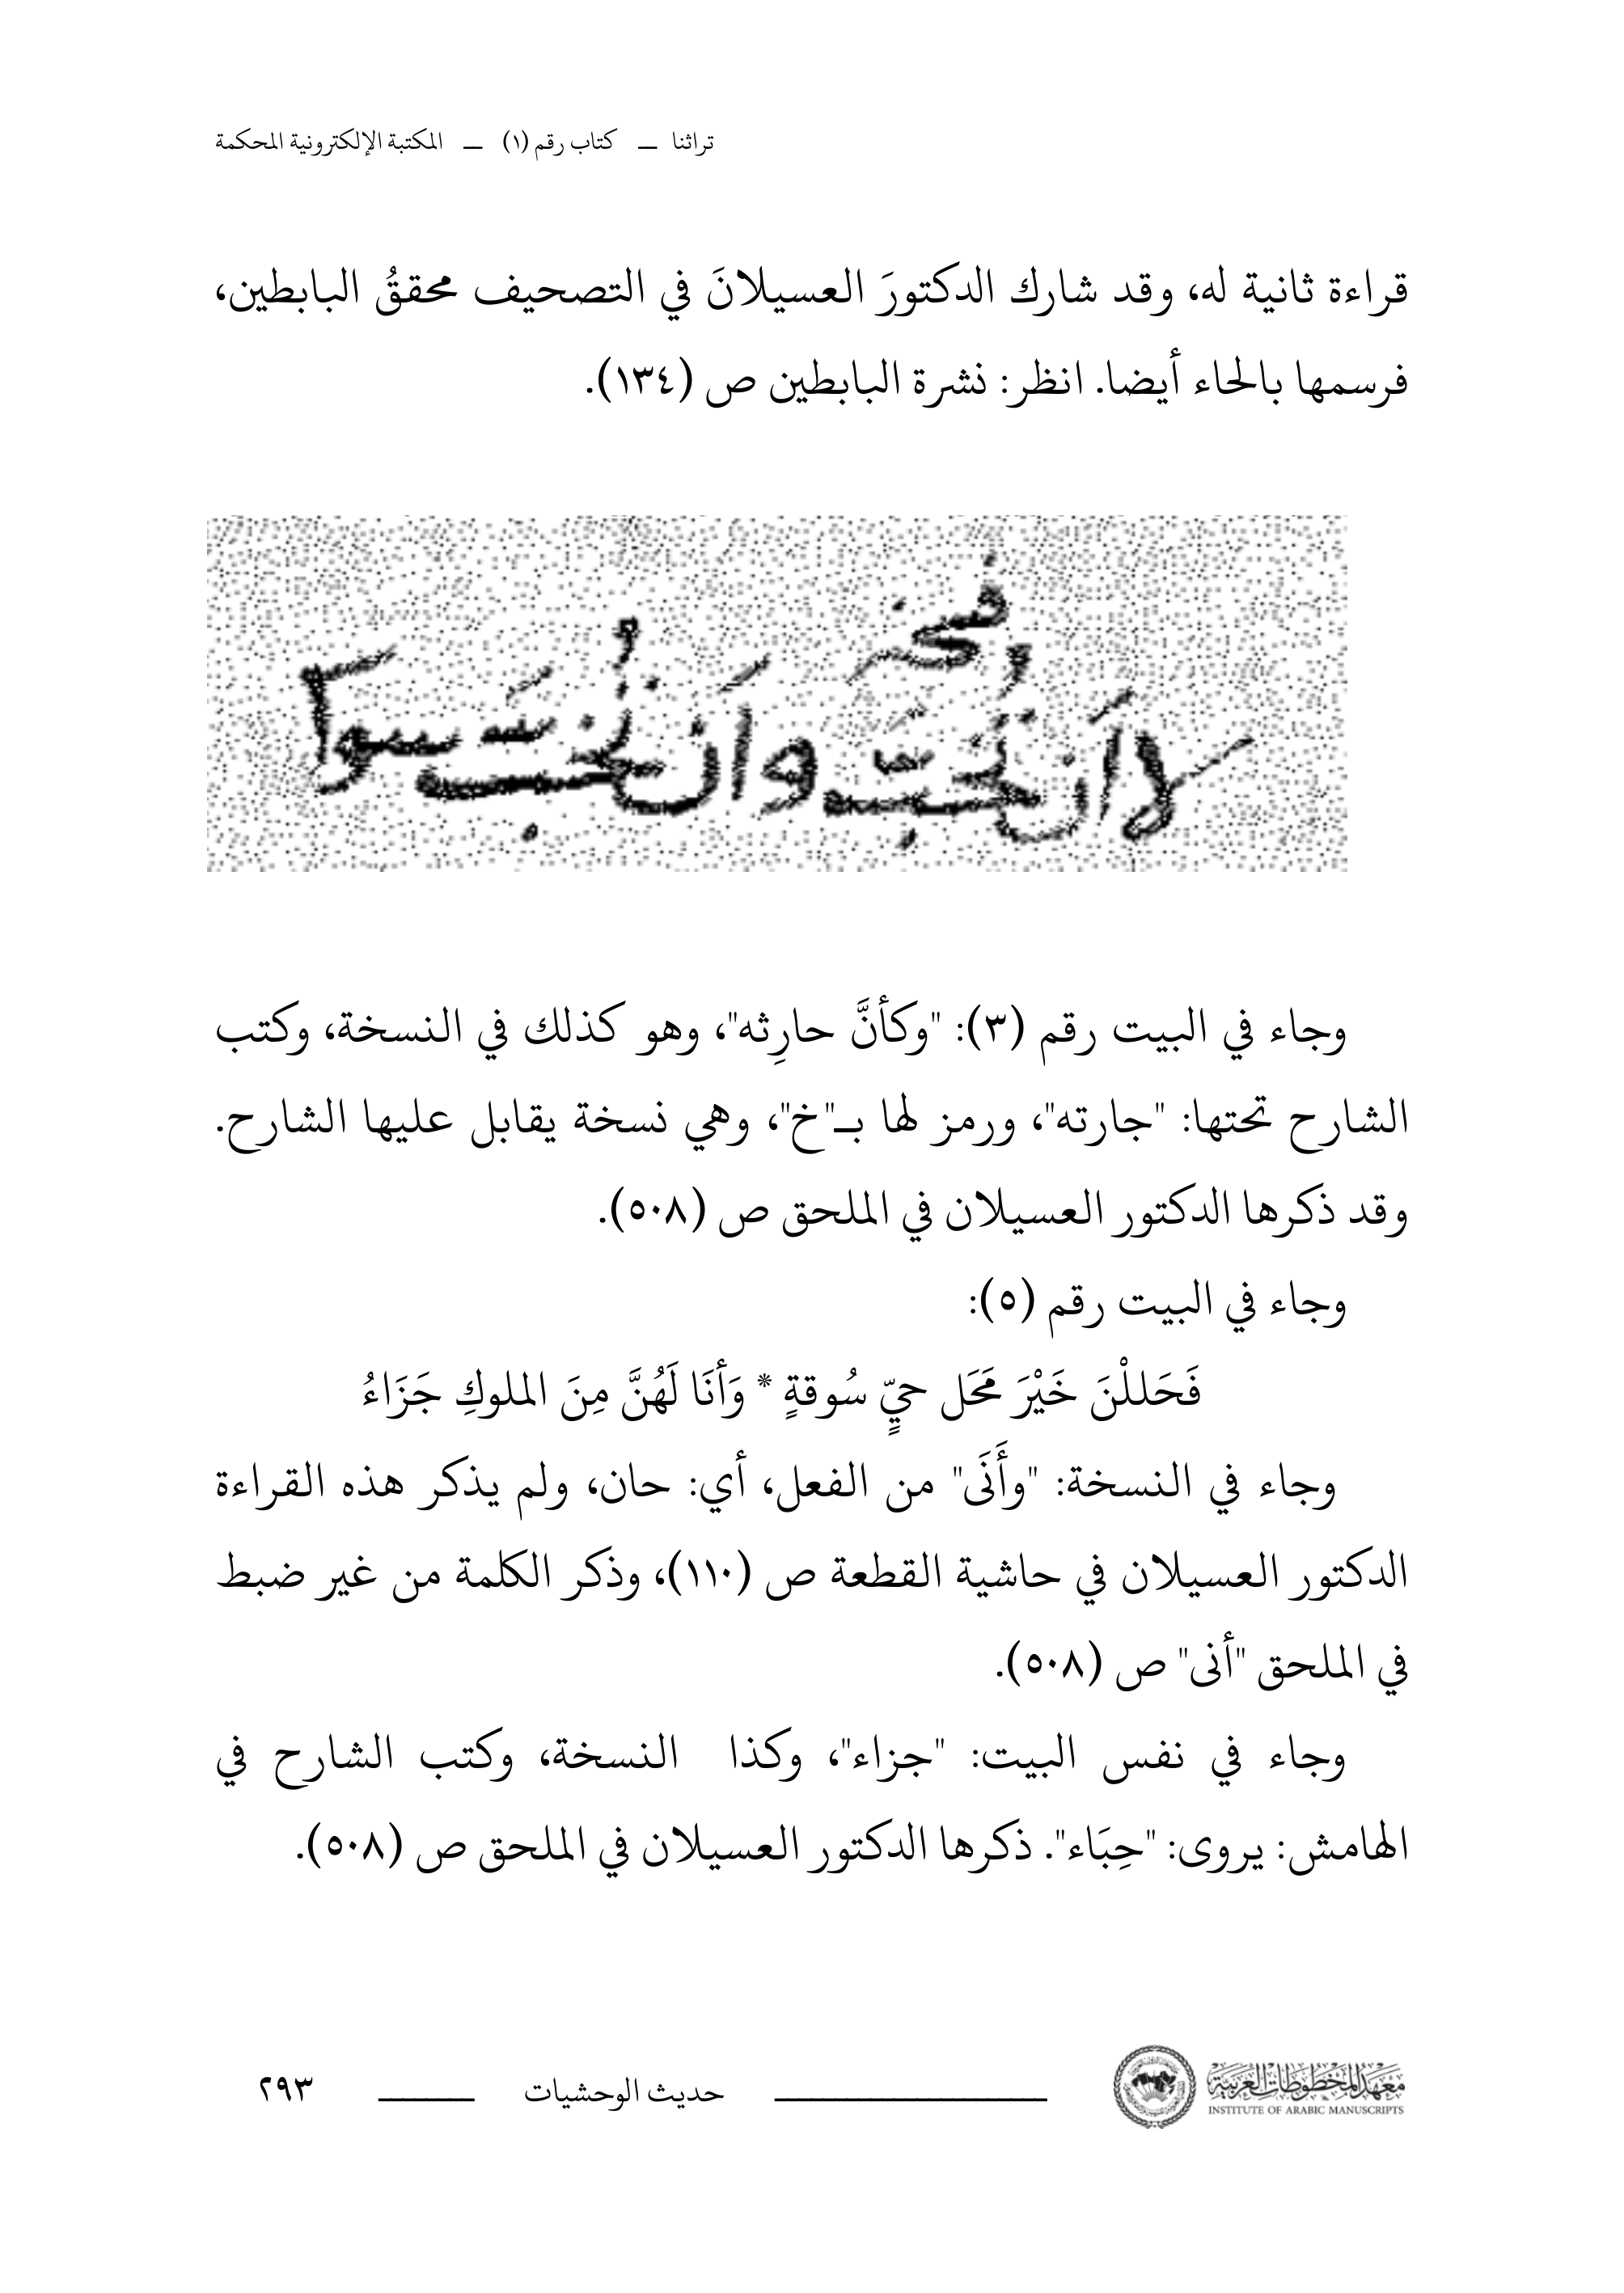 تراثنا ـــ كتاب رقم (١) ـــ المكتبة الإلكترونية المحكمة
قراءة ثانية له، وقد شارك الدكتورَ العسيلانَ في التصحيف محققُ البابطين،
فرسمها بالحاء أيضا. انظر: نشرة البابطين ص (١٣٤).
وجاء في البيت رقم (٣): "وكأنَّ حارِثه"، وهو كذلك في النسخة، وكتب
الشارح تحتها: "جارته"، ورمز لها بـ"خ"، وهي نسخة يقابل عليها الشارح.
وقد ذكرها الدكتور العسيلان في الملحق ص (٥٠٨).
وجاء في البيت رقم (٥):
فَحَللْنَ خَيْرَ مَحَل حيٍّ سُوقةٍ * وَأنَا لَهُنَّ مِنَ الملوكِ جَزَاءُ
وجاء في النسخة: "وأَنَى" من الفعل، أي: حان، ولم يذكر هذه القراءة
الدكتور العسيلان في حاشية القطعة ص (١١٠)، وذكر الكلمة من غير ضبط
في الملحق "أنى" ص (٥٠٨).
وجاء في نفس البيت: "جزاء"، وكذا النسخة، وكتب الشارح في
الهامش: يروى: "حِبَاء". ذكرها الدكتور العسيلان في الملحق ص (٥٠٨).
معهد المخطوطات العربية
INSTITUTE OF ARABIC MANUSCRIPTS
حديث الوحشيات
٢٩٣